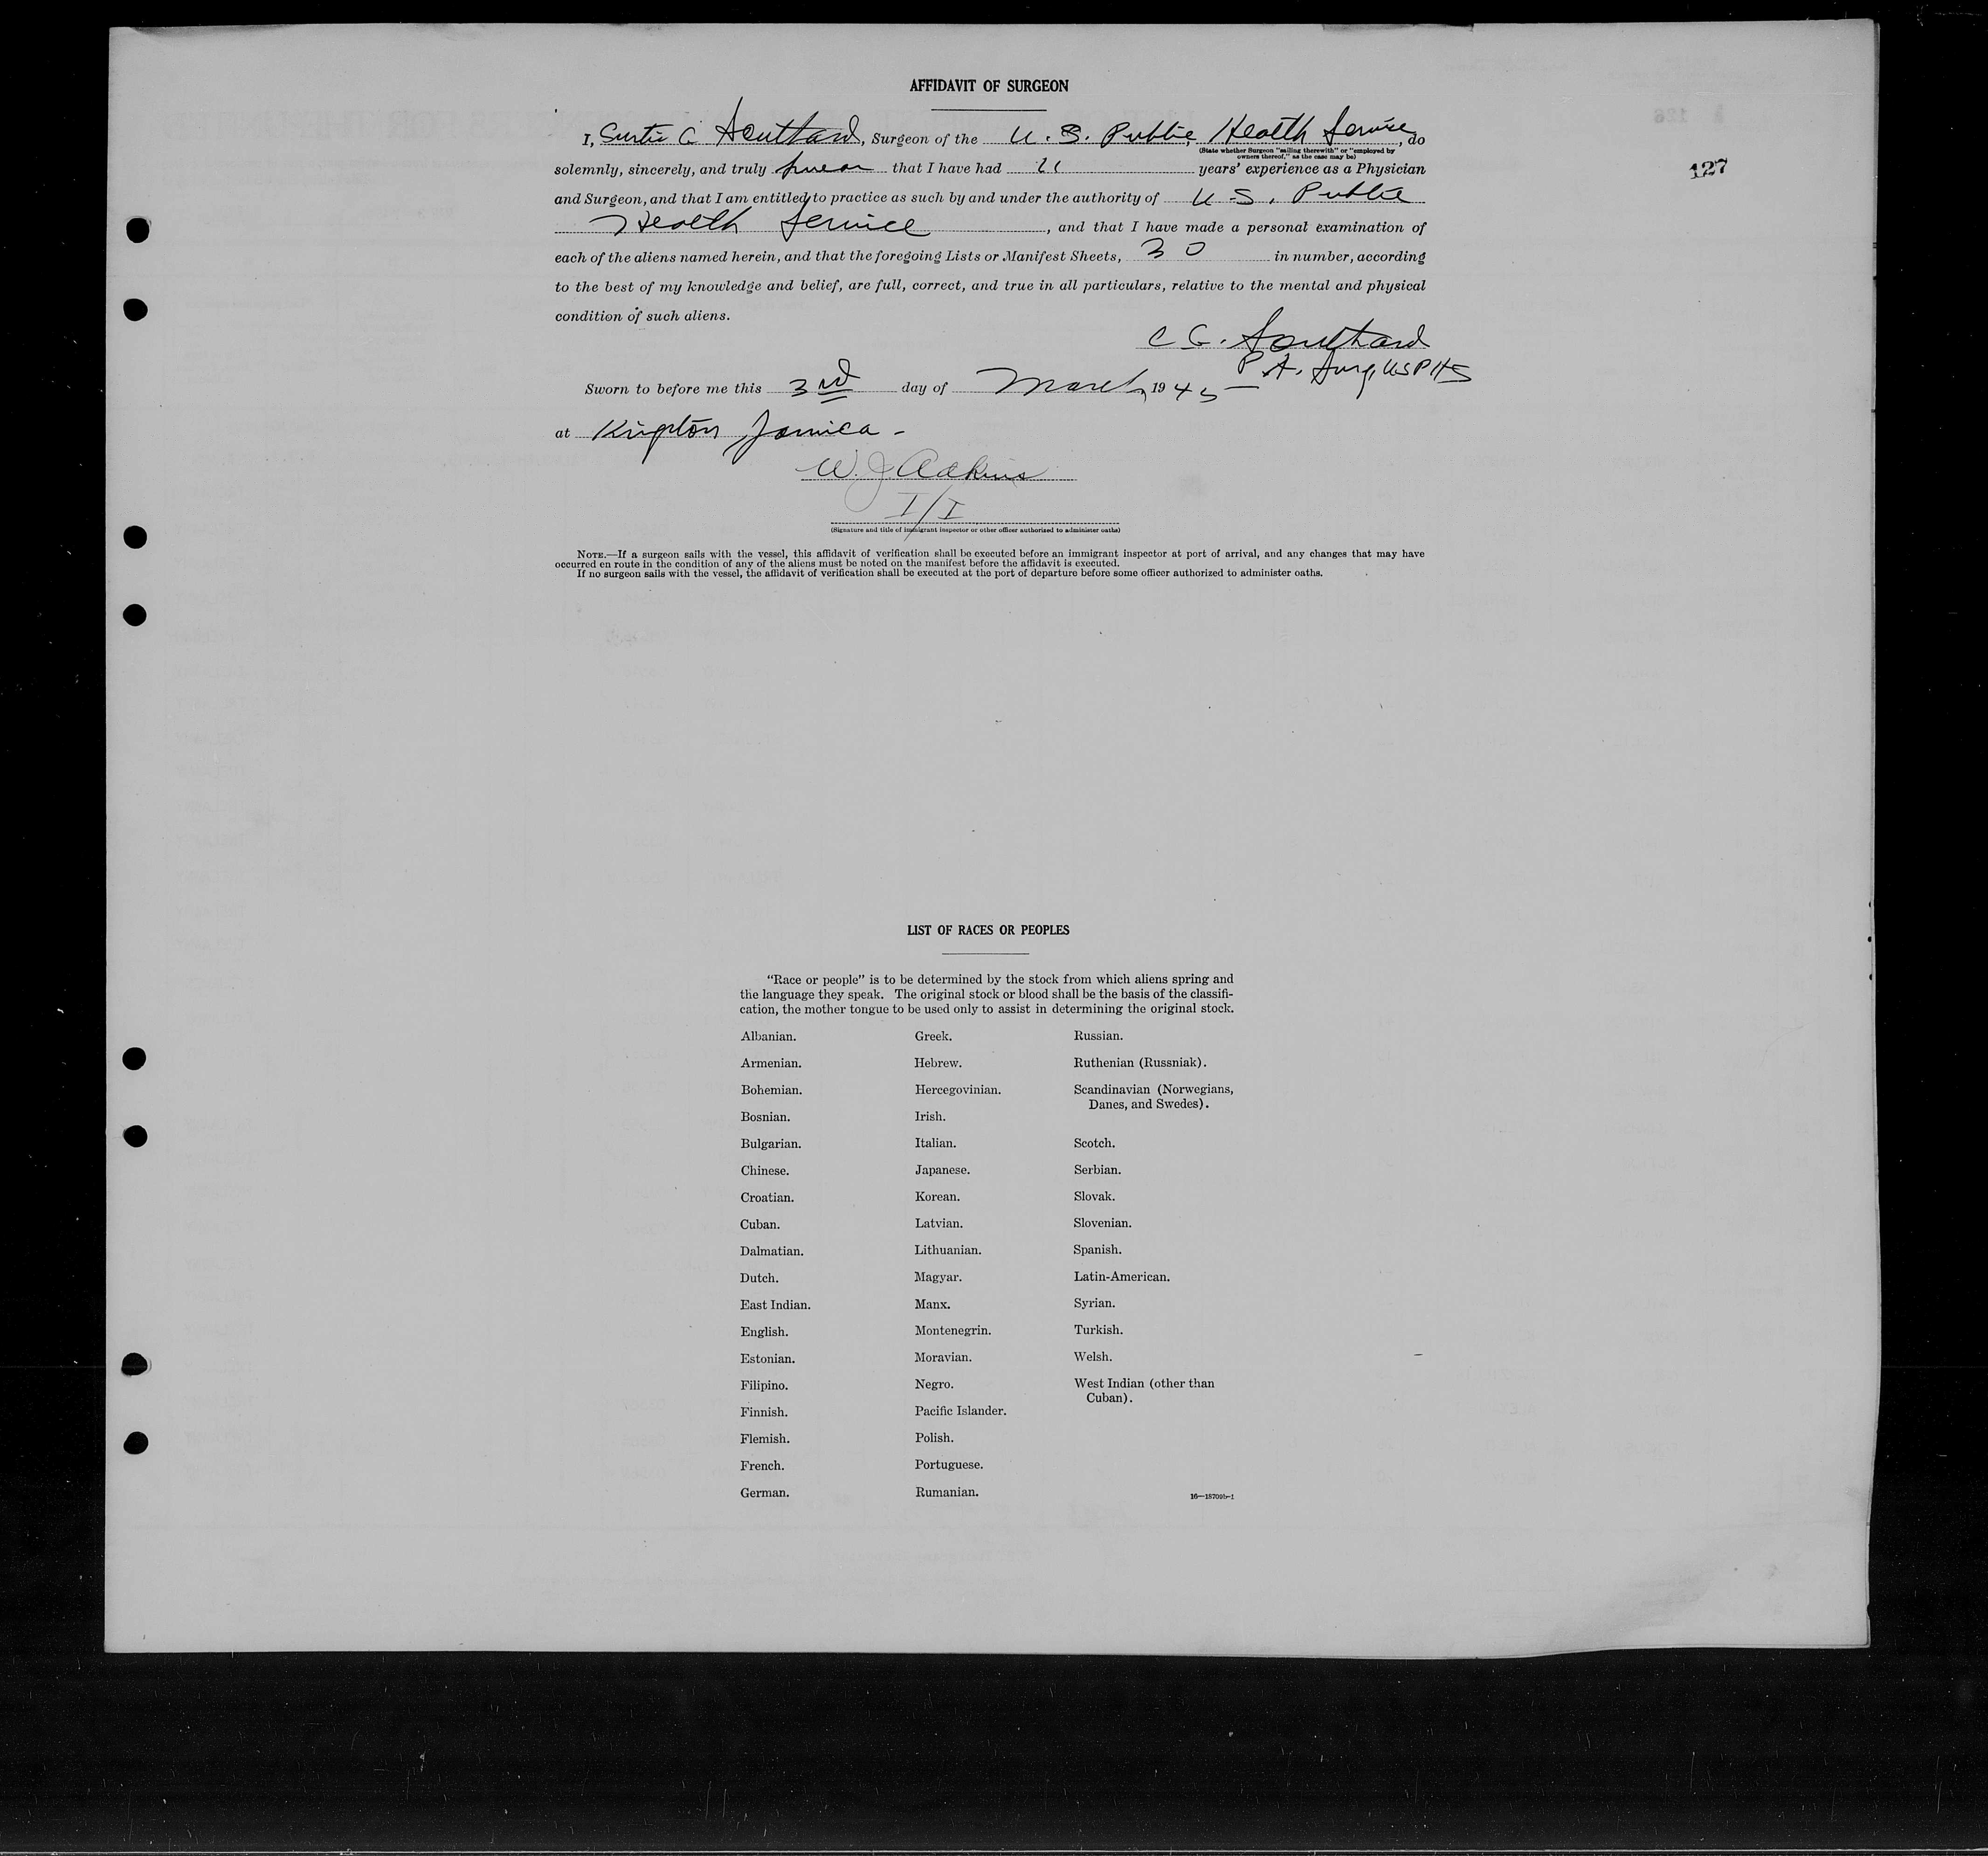 AFFIDAVIT OF SURGEON
I, Curtis G Southard, Surgeon of the U. S. Public Health Service, do
(State whether Surgeon "sailing therewith" or "employed by
owners thereof," as the case may be)
127
solemnly, sincerely, and truly swear that I have had years' experience as a Physician
and Surgeon, and that I am entitled to practice as such by and under the authority of U.S. Public
Health Service, and that I have made a personal examination of
each of the aliens named herein, and that the foregoing Lists or Manifest Sheets, 30 in number, according
to the best of my knowledge and belief, are full, correct, and true in all particulars, relative to the mental and physical
condition of such aliens.
C G. Southard
P. A. Surg, USPHS
Sworn to before me this 3rd day of March 1945
at Kington Jamica -
W. J. Adkins
I/I
(Signature and title of immigrant inspector or other officer authorized to administer oaths)
NOTE.—If a surgeon sails with the vessel, this affidavit of verification shall be executed before an immigrant inspector at port of arrival, and any changes that may have
occurred en route in the condition of any of the aliens must be noted on the manifest before the affidavit is executed.
If no surgeon sails with the vessel, the affidavit of verification shall be executed at the port of departure before some officer authorized to administer oaths.
LIST OF RACES OR PEOPLES
"Race or people" is to be determined by the stock from which aliens spring and
the language they speak. The original stock or blood shall be the basis of the classifi-
cation, the mother tongue to be used only to assist in determining the original stock.
Albanian.
Armenian.
Bohemian.
Bosnian.
Bulgarian.
Chinese.
Croatian.
Cuban.
Dalmatian.
Dutch.
East Indian.
English.
Estonian.
Filipino.
Finnish.
Flemish.
French.
German.
Greek.
Hebrew.
Hercegovinian.
Irish.
Italian.
Japanese.
Korean.
Latvian.
Lithuanian.
Magyar.
Manx.
Montenegrin.
Moravian.
Negro.
Pacific Islander.
Polish.
Portuguese.
Rumanian.
Russian.
Ruthenian (Russniak).
Scandinavian (Norwegians,
Danes, and Swedes).
Scotch.
Serbian.
Slovak.
Slovenian.
Spanish.
Latin-American.
Syrian.
Turkish.
Welsh.
West Indian (other than
Cuban).